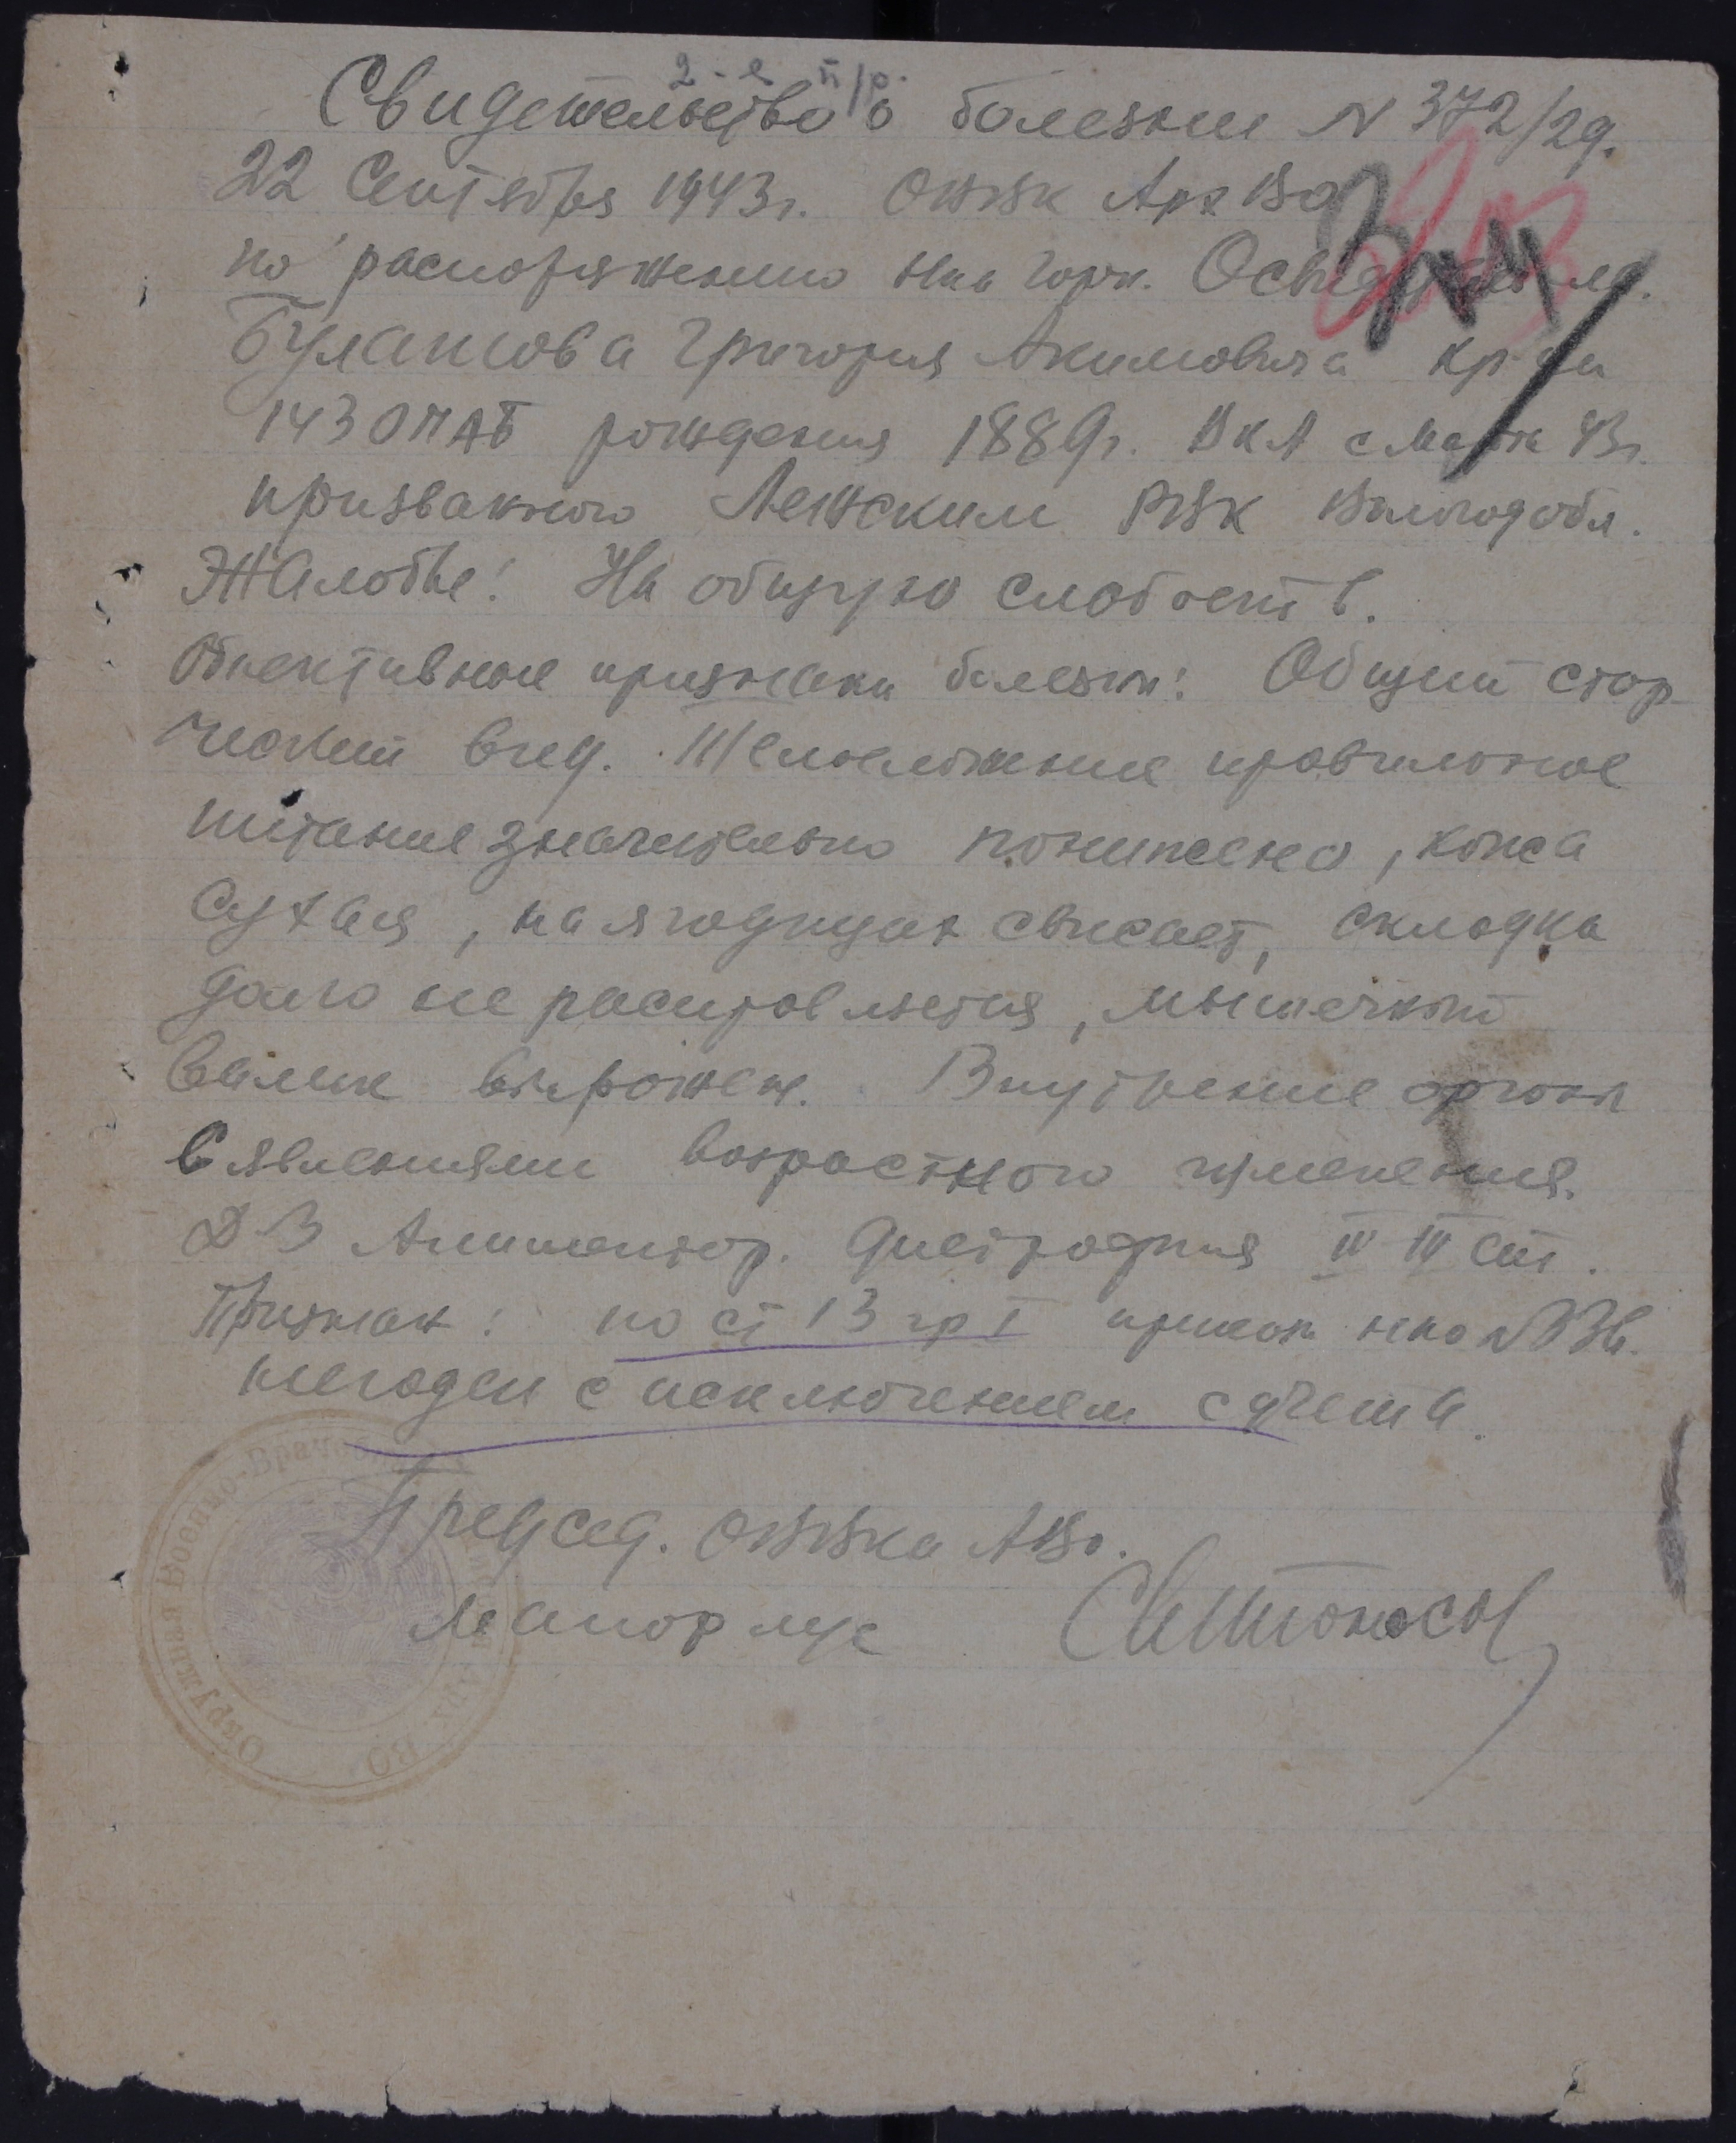 2-е п/р.
Свидетельство о болезни N 372/29.
22 Сентября 1943г. ОВВК АрхВО
по распоряжению Нач
Григория Акимовича кр-ца
143 рождения 1889г. В КА с Марта 43г.
призванного Лежским РВК Вологод обл.
Жалобы: На общую слабость.
Обективные признаки болезни: Общий стар-
ческий вид. Телосложение правильное
питание значительно понижено, кожа
сухая, на ягодицах свисает, складка
долго не расправляется, мышечный
валик выражен. Внутренние органы
с явлениями возрастного изменения.
Д-З Алиментар. дистрофия
Признан: по ст 13 гр I приказ НКО N 336.
негоден с исключением с учета.
Председ. ОВВКа АВО.
Майор м/с
Окружная Военно-Врачебная
Арх. ВО